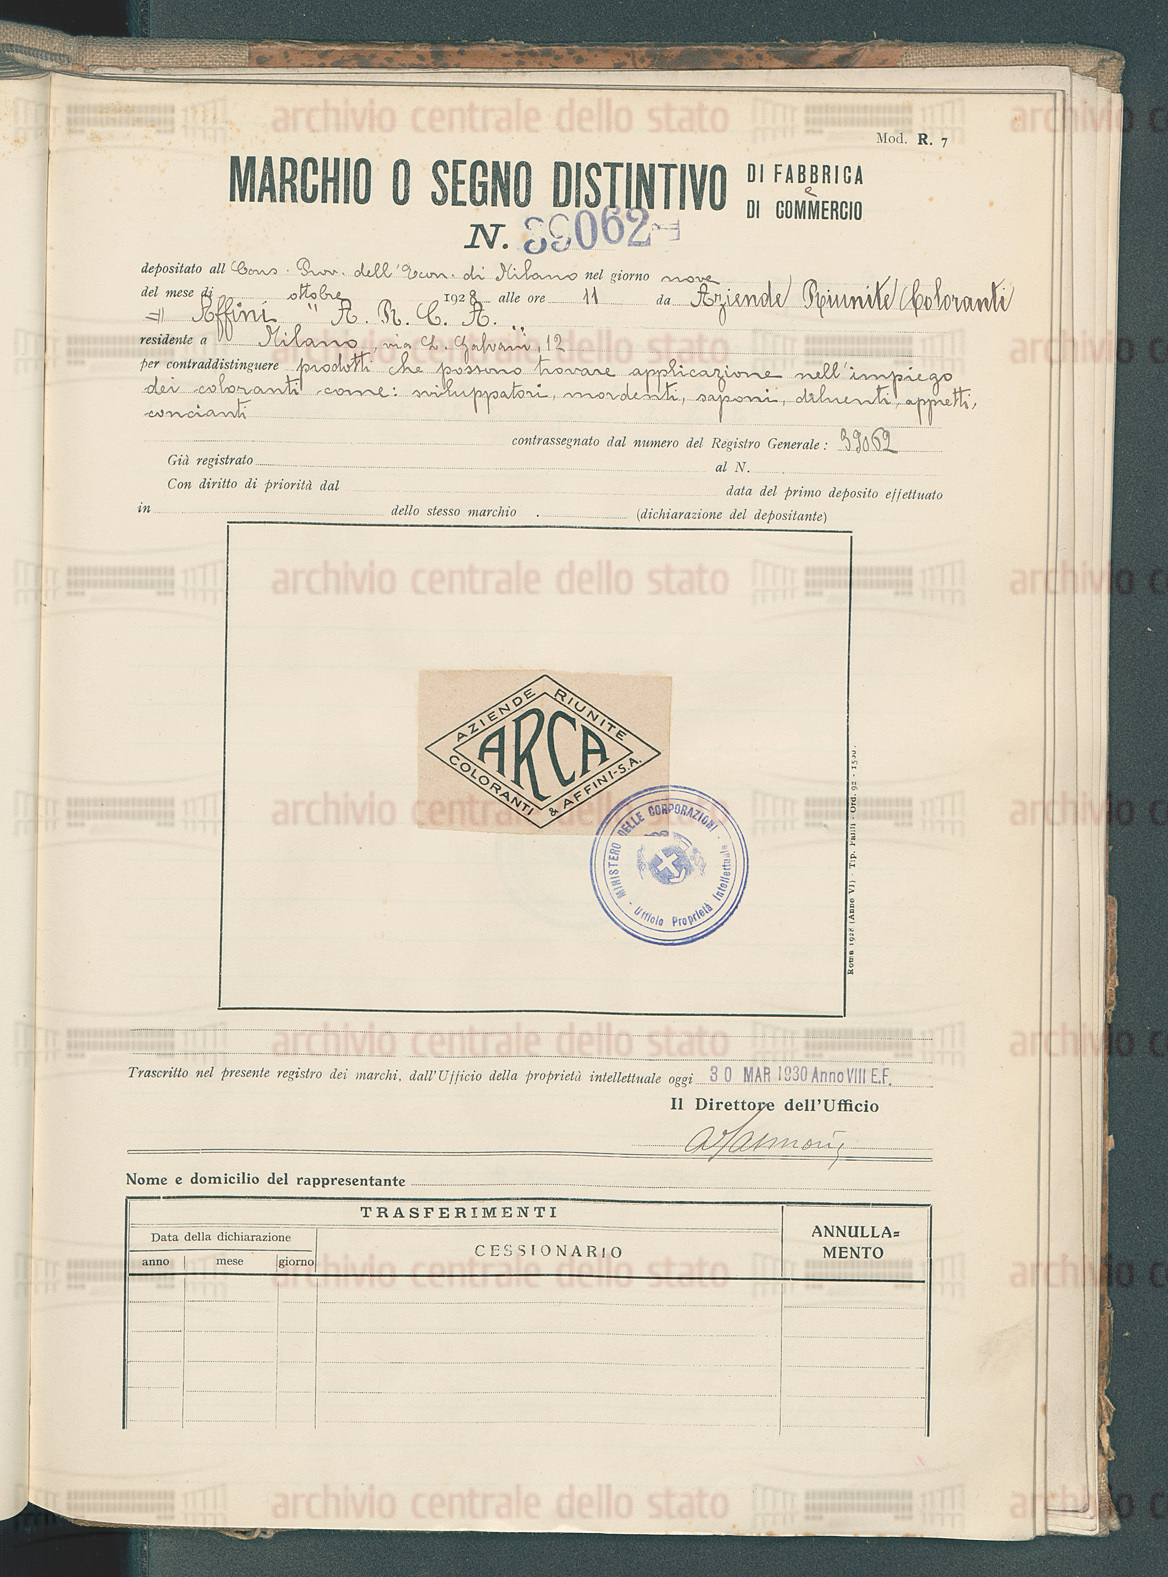 Mod. R. 7
MARCHIO O SEGNO DISTINTIVO DI FABBRICA e DI COMMERCIO
N. 39062
depositato all Cons. Prov. dell'Econ. di Milano nel giorno nove
del mese di ottobre 1928 alle ore 11 da Aziende Riunite Coloranti
Affini "A. R. C. A."
residente a Milano, via L. Galvani, 12
per contraddistinguere prodotti che possono trovare applicazione nell'impiego
dei coloranti come: sviluppatori, mordenti, saponi, diluenti, appretti,
concianti
contrassegnato dal numero del Registro Generale: 39062
Già registrato al N.
Con diritto di priorità dal data del primo deposito effettuato
in dello stesso marchio . (dichiarazione del depositante)
AZIENDE RIUNITE
ARCA
COLORANTI & AFFINI-S.A.
MINISTERO DELLE CORPORAZIONI
- Ufficio Proprietà Intellettuale
Roma 1928 (Anno VI) - Tip. Failli - Ord. 92 -
Trascritto nel presente registro dei marchi, dall'Ufficio della proprietà intellettuale oggi 30 MAR 1930 Anno VIII E.F.
Il Direttore dell'Ufficio
Nome e domicilio del rappresentante
TRASFERIMENTI
Data della dichiarazione
anno mese giorno
CESSIONARIO
ANNULLA=
MENTO
archivio centrale dello stato